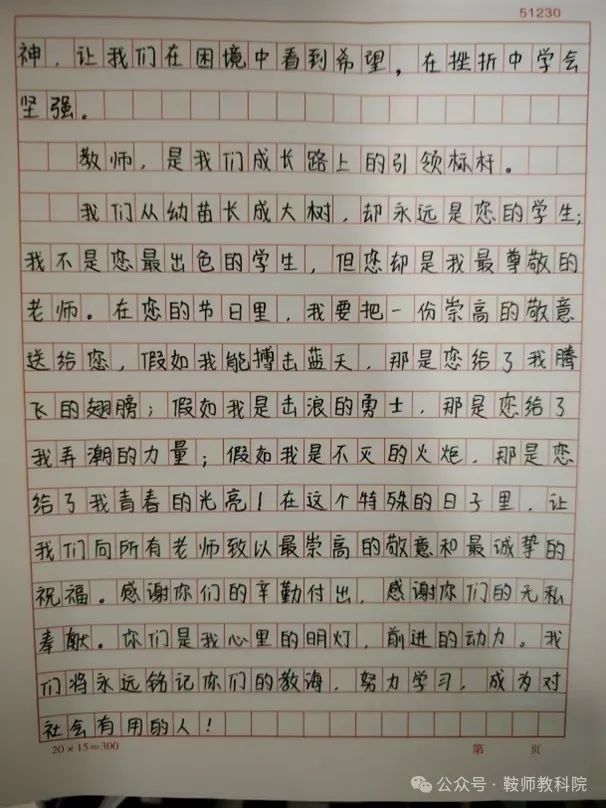 51230
神，让我们在困境中看到希望，在挫折中学会
坚强。
教师，是我们成长路上的引领标杆。
我们从幼苗长成大树，却永远是您的学生；
我不是您最出色的学生，但您却是我最尊敬的
老师。在您的节日里，我要把一份崇高的敬意
送给您，假如我能搏击蓝天，那是您给了我腾
飞的翅膀；假如我是击浪的勇士，那是您给了
我弄潮的力量；假如我是不灭的火炬，那是您
给了我青春的光亮！在这个特殊的日子里，让
我们向所有老师致以最崇高的敬意和最诚挚的
祝福。感谢你们的辛勤付出，感谢你们的无私
奉献。你们是我心里的明灯，前进的动力。我
们将永远铭记你们的教诲，努力学习，成为对
社会有用的人！
20×15=300
第 页
公众号·鞍师教科院